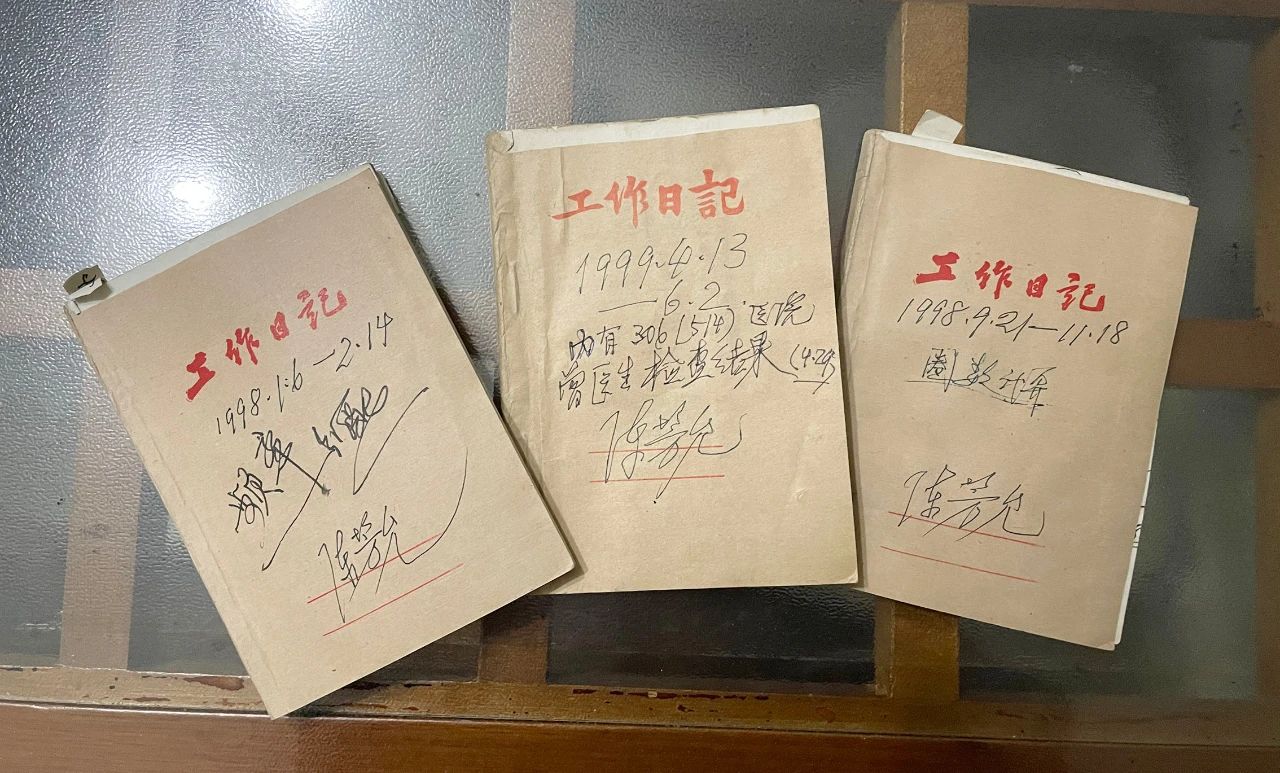 工作日記
1998.1.6—2.14
频率分配
陈芳允
工作日記
1999.4.13
—6.2.
内有306(514)医院
曾医生检查结果(4.29)
陈芳允
工作日記
1998.9.21—11.18
圈数计算
陈芳允